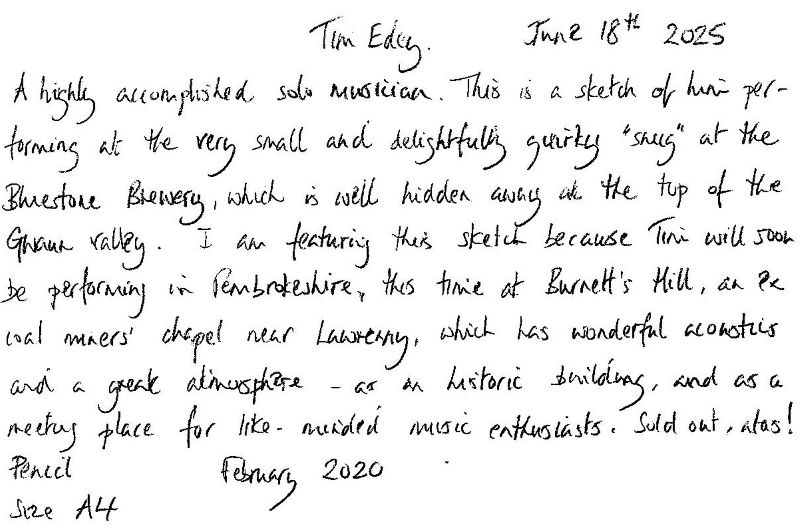 Tim Edey. June 18th 2025
A highly accomplished solo musician. This is a sketch of him per-
forming at the very small and delightfully quirky "snug" at the
Bluestone Brewery, which is well hidden away at the top of the
Gwaun valley. I am featuring this sketch because Tim will soon
be performing in Pembrokeshire, this time at Burnett's Hill, an ex
coal miners' chapel near Lawrenny, which has wonderful acoustics
and a great atmosphere - as an historic building, and as a
meeting place for like-minded music enthusiasts. Sold out, alas!
Pencil February 2020
Size A4